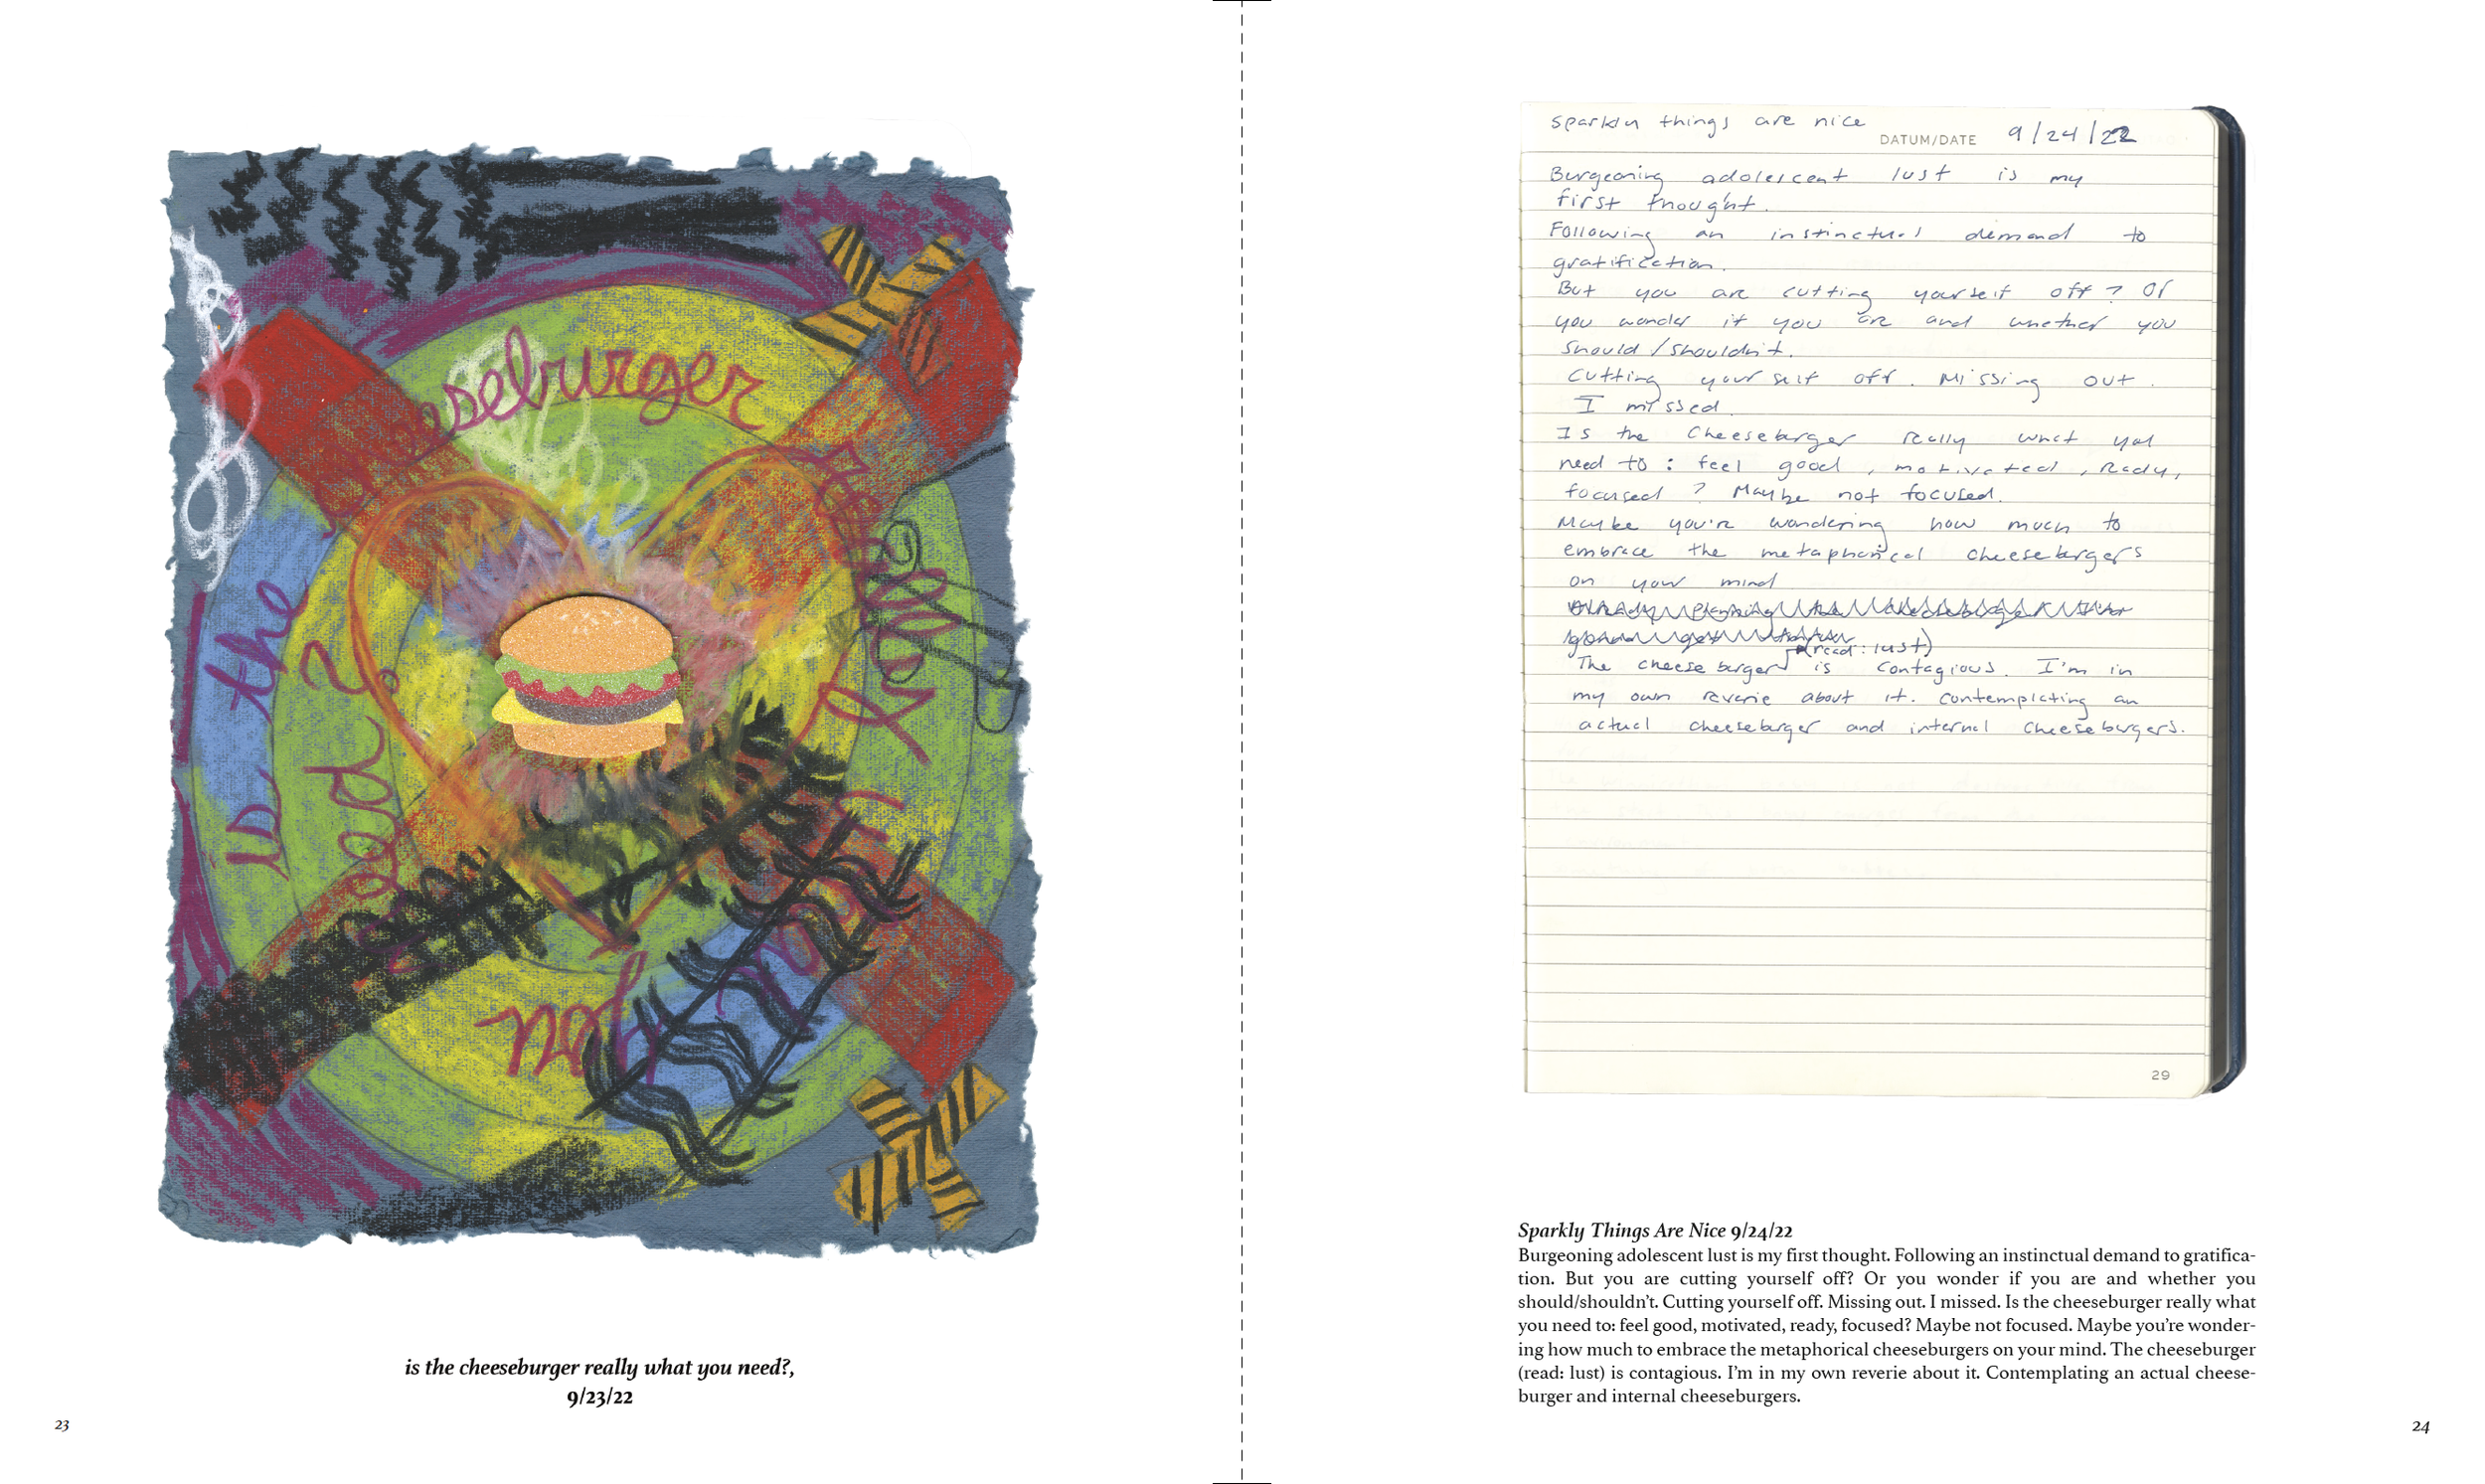 is the
cheeseburger
really
what
you
need?
is the cheeseburger really what you need?,
9/23/22
23
sparkly things are nice
DATUM/DATE 9/24/22
Burgeoning adolescent lust is my
first thought.
Following an instinctual demand to
gratification.
But you are cutting yourself off? Or
you wonder if you are and whether you
should/shouldn't.
Cutting yourself off. Missing out.
I missed.
Is the Cheeseburger really what you
need to: feel good, motivated, ready,
focused? Maybe not focused.
Maybe you're wondering how much to
embrace the metaphorical cheeseburgers
on your mind
(read: lust)
The cheeseburger is contagious. I'm in
my own reverie about it. Contemplating an
actual cheeseburger and internal cheeseburgers.
29
Sparkly Things Are Nice 9/24/22
Burgeoning adolescent lust is my first thought. Following an instinctual demand to gratifica-
tion. But you are cutting yourself off? Or you wonder if you are and whether you
should/shouldn't. Cutting yourself off. Missing out. I missed. Is the cheeseburger really what
you need to: feel good, motivated, ready, focused? Maybe not focused. Maybe you're wonder-
ing how much to embrace the metaphorical cheeseburgers on your mind. The cheeseburger
(read: lust) is contagious. I'm in my own reverie about it. Contemplating an actual cheese-
burger and internal cheeseburgers.
24